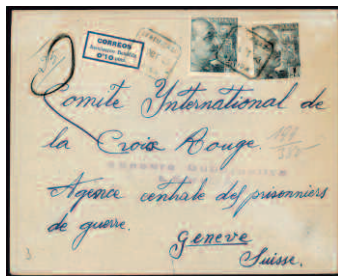 CORREOS
0'10
Comité International de
la Croix Rouge.
Agence centrale des prisonniers
de guerre.
Geneve
Suisse.